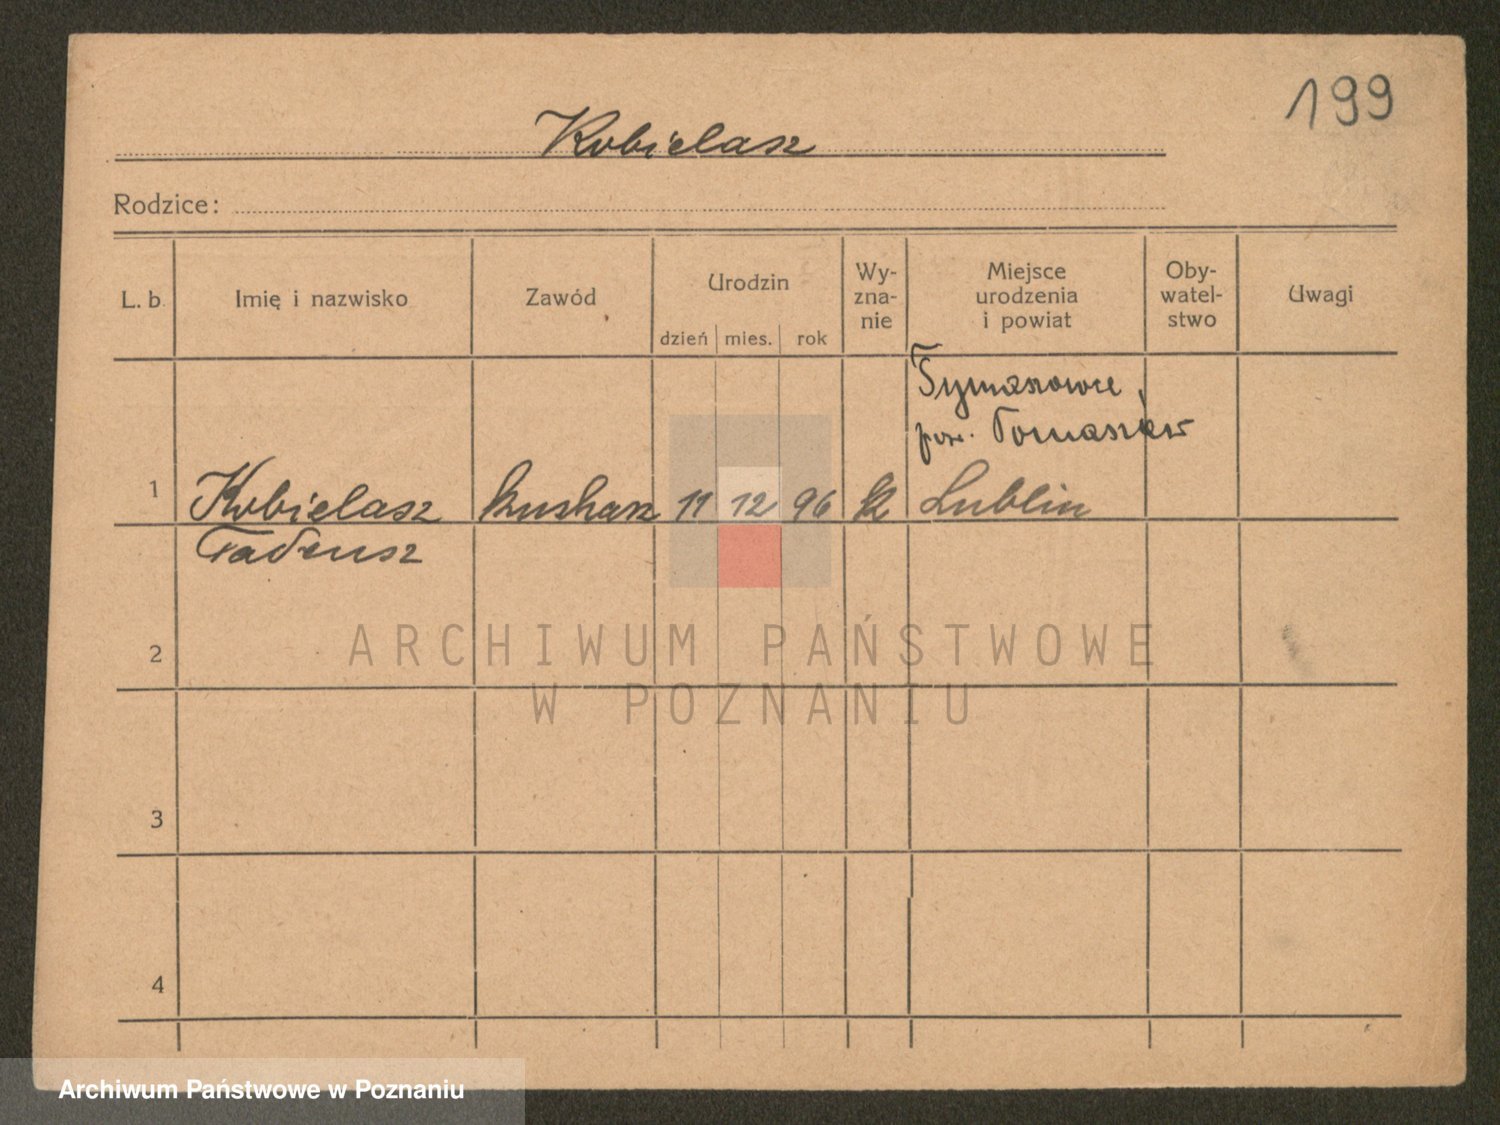 199
Kobielasz
Rodzice:
L. b. Imię i nazwisko Zawód Urodzin Wyznanie Miejsce urodzenia i powiat Obywatelstwo Uwagi
dzień mies. rok
Tymanowce,
pow. Tomaszów
1 Kobielasz kucharz 11 12 96 k Lublin
Tadeusz
2
ARCHIWUM PAŃSTWOWE
W POZNANIU
3
4
Archiwum Państwowe w Poznaniu